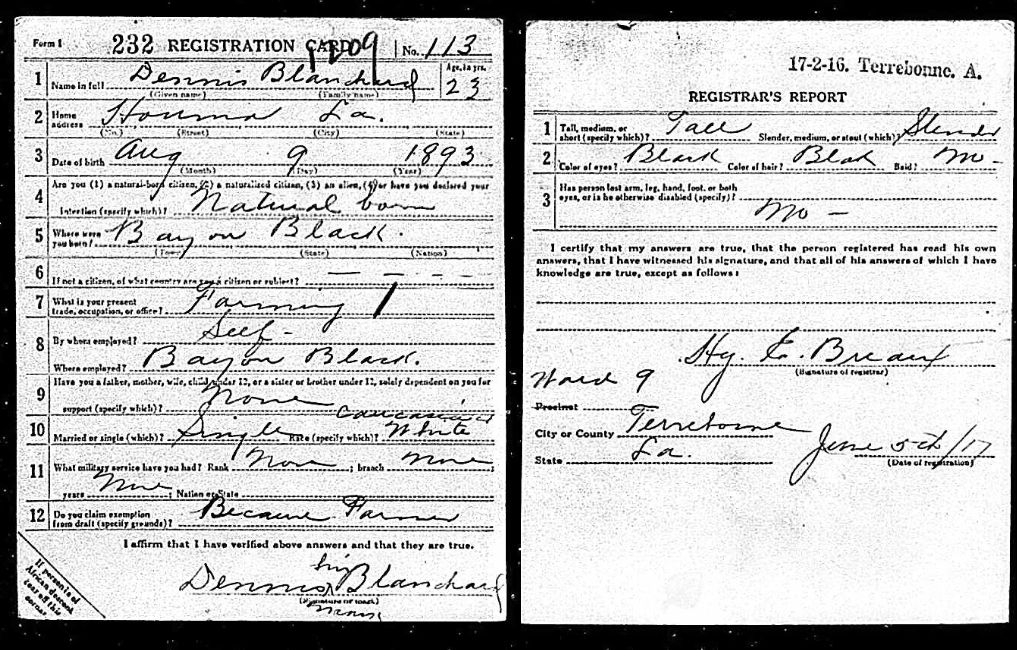 Form 1 232 REGISTRATION CARD 1209 No. 113
1 Name in full Dennis Blanchard Age, in yrs. 23
(Given name) (Family name)
2 Home address Houma La.
(No.) (Street) (City) (State)
3 Date of birth Aug 9 1893
(Month) (Day) (Year)
4 Are you (1) a natural-born citizen, (2) a naturalized citizen, (3) an alien, (4) or have you declared your
intention (specify which)? Natural born
5 Where were you born? Bayou Black.
(Town) (State) (Nation)
6 If not a citizen, of what country are you a citizen or subject? — — — —
7 What is your present trade, occupation, or office? Farming
8 By whom employed? Self -
Where employed? Bayou Black.
9 Have you a father, mother, wife, child under 12, or a sister or brother under 12, solely dependent on you for
support (specify which)? None
Caucasian
10 Married or single (which)? Single Race (specify which)? White
11 What military service have you had? Rank None ; branch None ;
years None ; Nation or State
12 Do you claim exemption from draft (specify grounds)? Because Farmer
I affirm that I have verified above answers and that they are true.
his
Dennis x Blanchard
(Signature or mark)
mark
If person is of
African descent
tear off this
corner
17-2-16. Terrebonne. A.
REGISTRAR'S REPORT
1 Tall, medium, or short (specify which)? Tall Slender, medium, or stout (which)? Slender
2 Color of eyes? Black Color of hair? Blak Bald? No -
3 Has person lost arm, leg, hand, foot, or both
eyes, or is he otherwise disabled (specify)?
No -
I certify that my answers are true, that the person registered has read his own
answers, that I have witnessed his signature, and that all of his answers of which I have
knowledge are true, except as follows:
Hy. E. Breaux
(Signature of registrar)
Ward 9
Precinct
City or County Terrebonne
State La.
June 5th/17
(Date of registration)